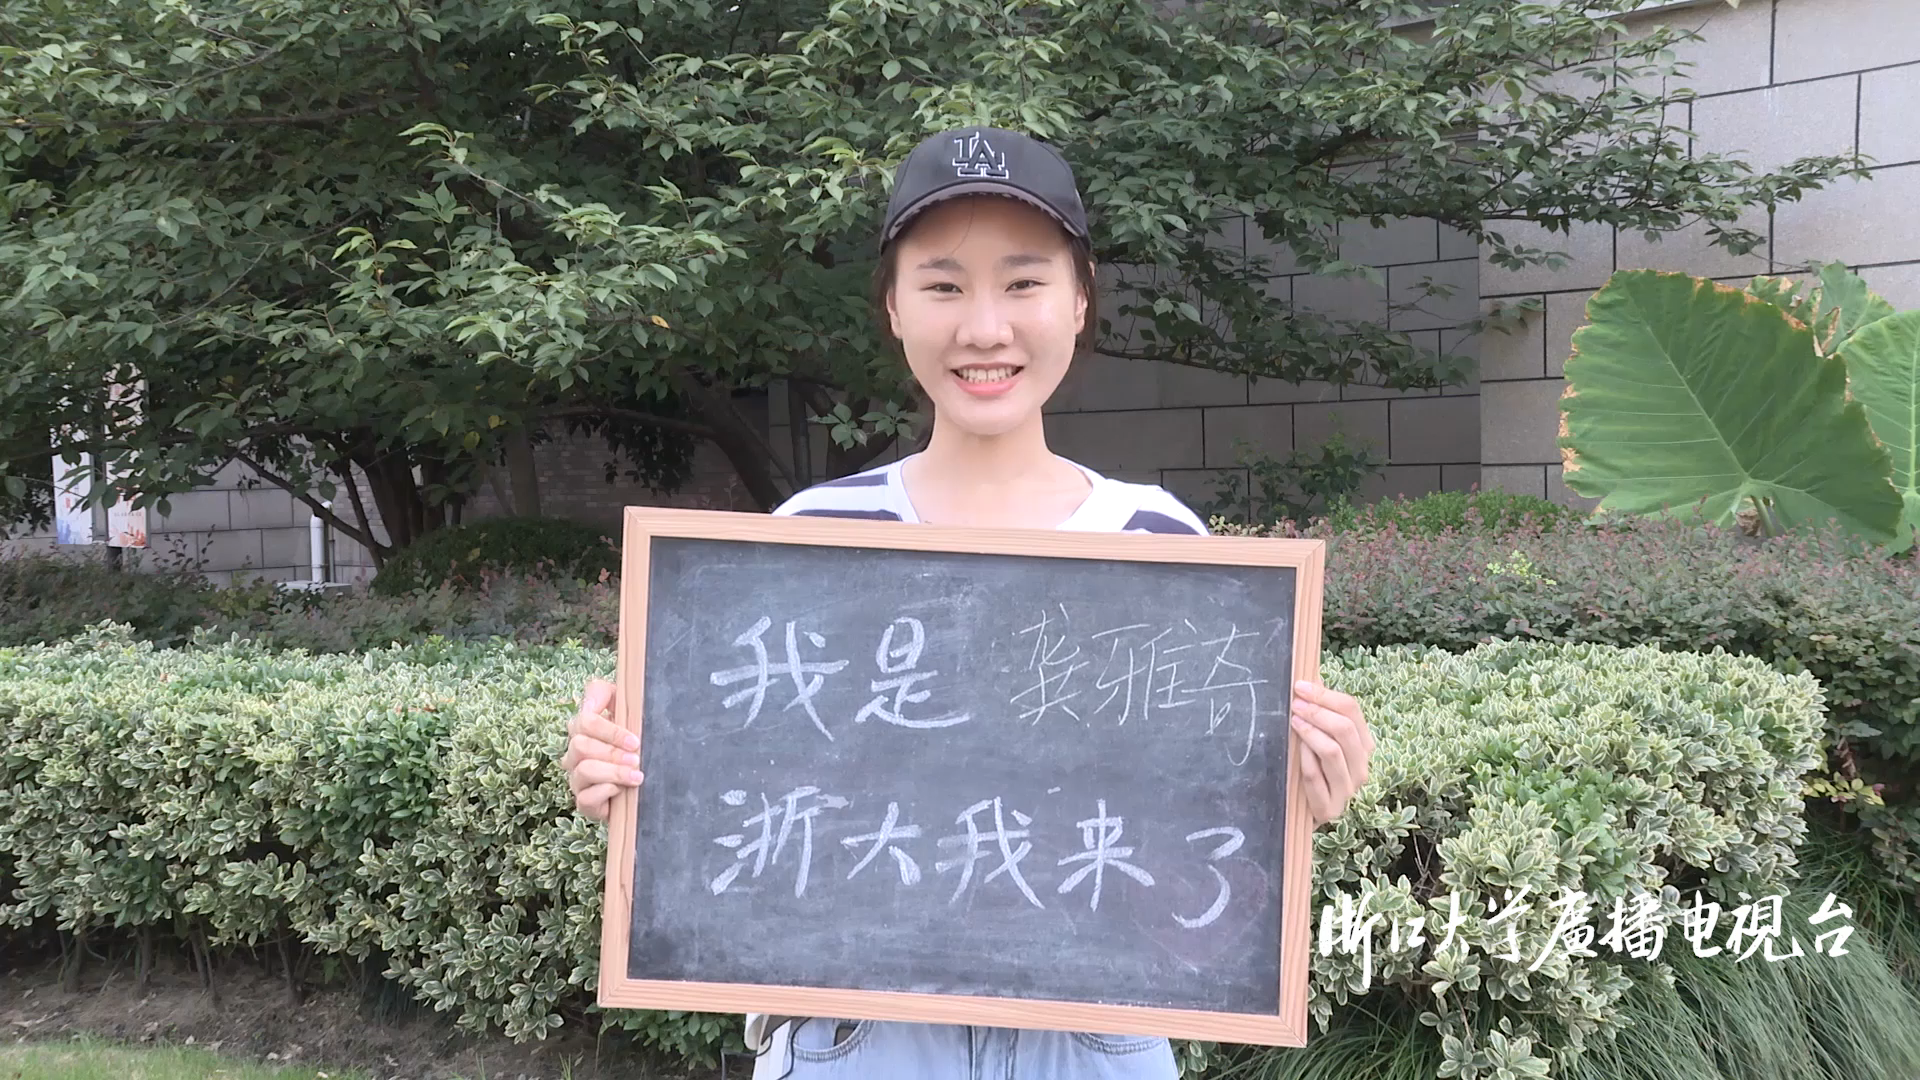 LA
我是 龚雅奇
浙大我来了
浙江大学廣播电視台